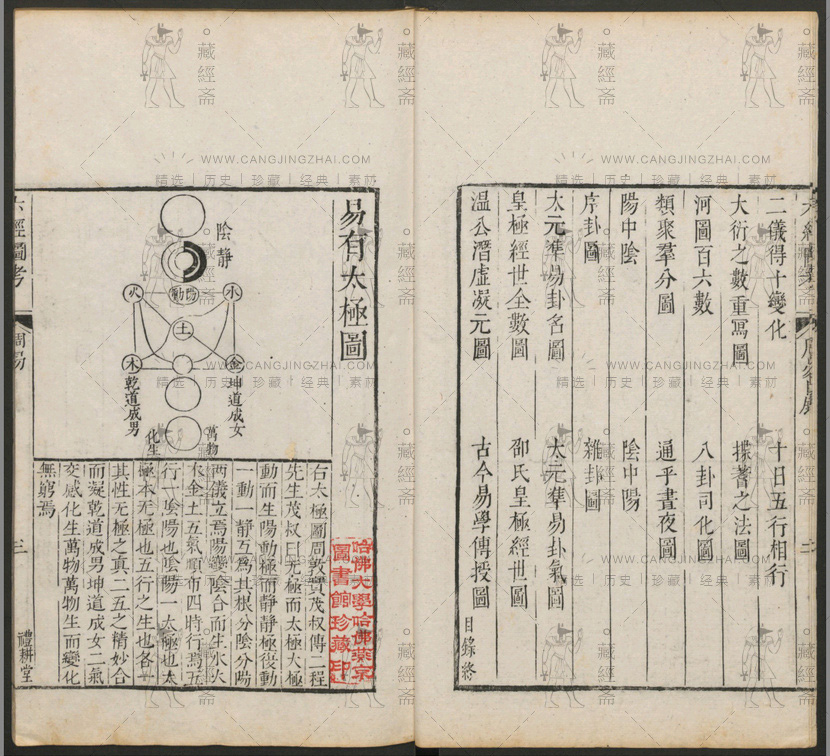 二儀得十變化
十日五行相行
大衍之數重寫圖
揲蓍之法圖
河圖百六數
八卦司化圖
類聚羣分圖
通乎晝夜圖
陽中陰
陰中陽
序卦圖
雜卦圖
太元準易卦名圖
太元準易卦氣圖
皇極經世全數圖
邵氏皇極經世圖
溫公潛虛凝元圖
古今易學傳授圖
目錄終
二
易有太極圖
陰靜
陽動
火
水
土
木
金
乾道成男
坤道成女
萬物
化生
右太極圖周敦實茂叔傳二程
先生茂叔曰无極而太極太極
動而生陽動極而靜靜極復動
一動一靜互爲其根分陰分陽
兩儀立焉陽變陰合而生水火
木金土五氣順布四時行焉五
行一陰陽也陰陽一太極也太
極本无極也五行之生也各一
其性无極之真二五之精妙合
而凝乾道成男坤道成女二氣
交感化生萬物萬物生而變化
無窮焉
哈佛大學哈佛燕京
圖書館珍藏印
六經圖考
周易
三
禮耕堂
藏經斋
WWW.CANGJINGZHAI.COM
精选|历史|珍藏|经典|素材